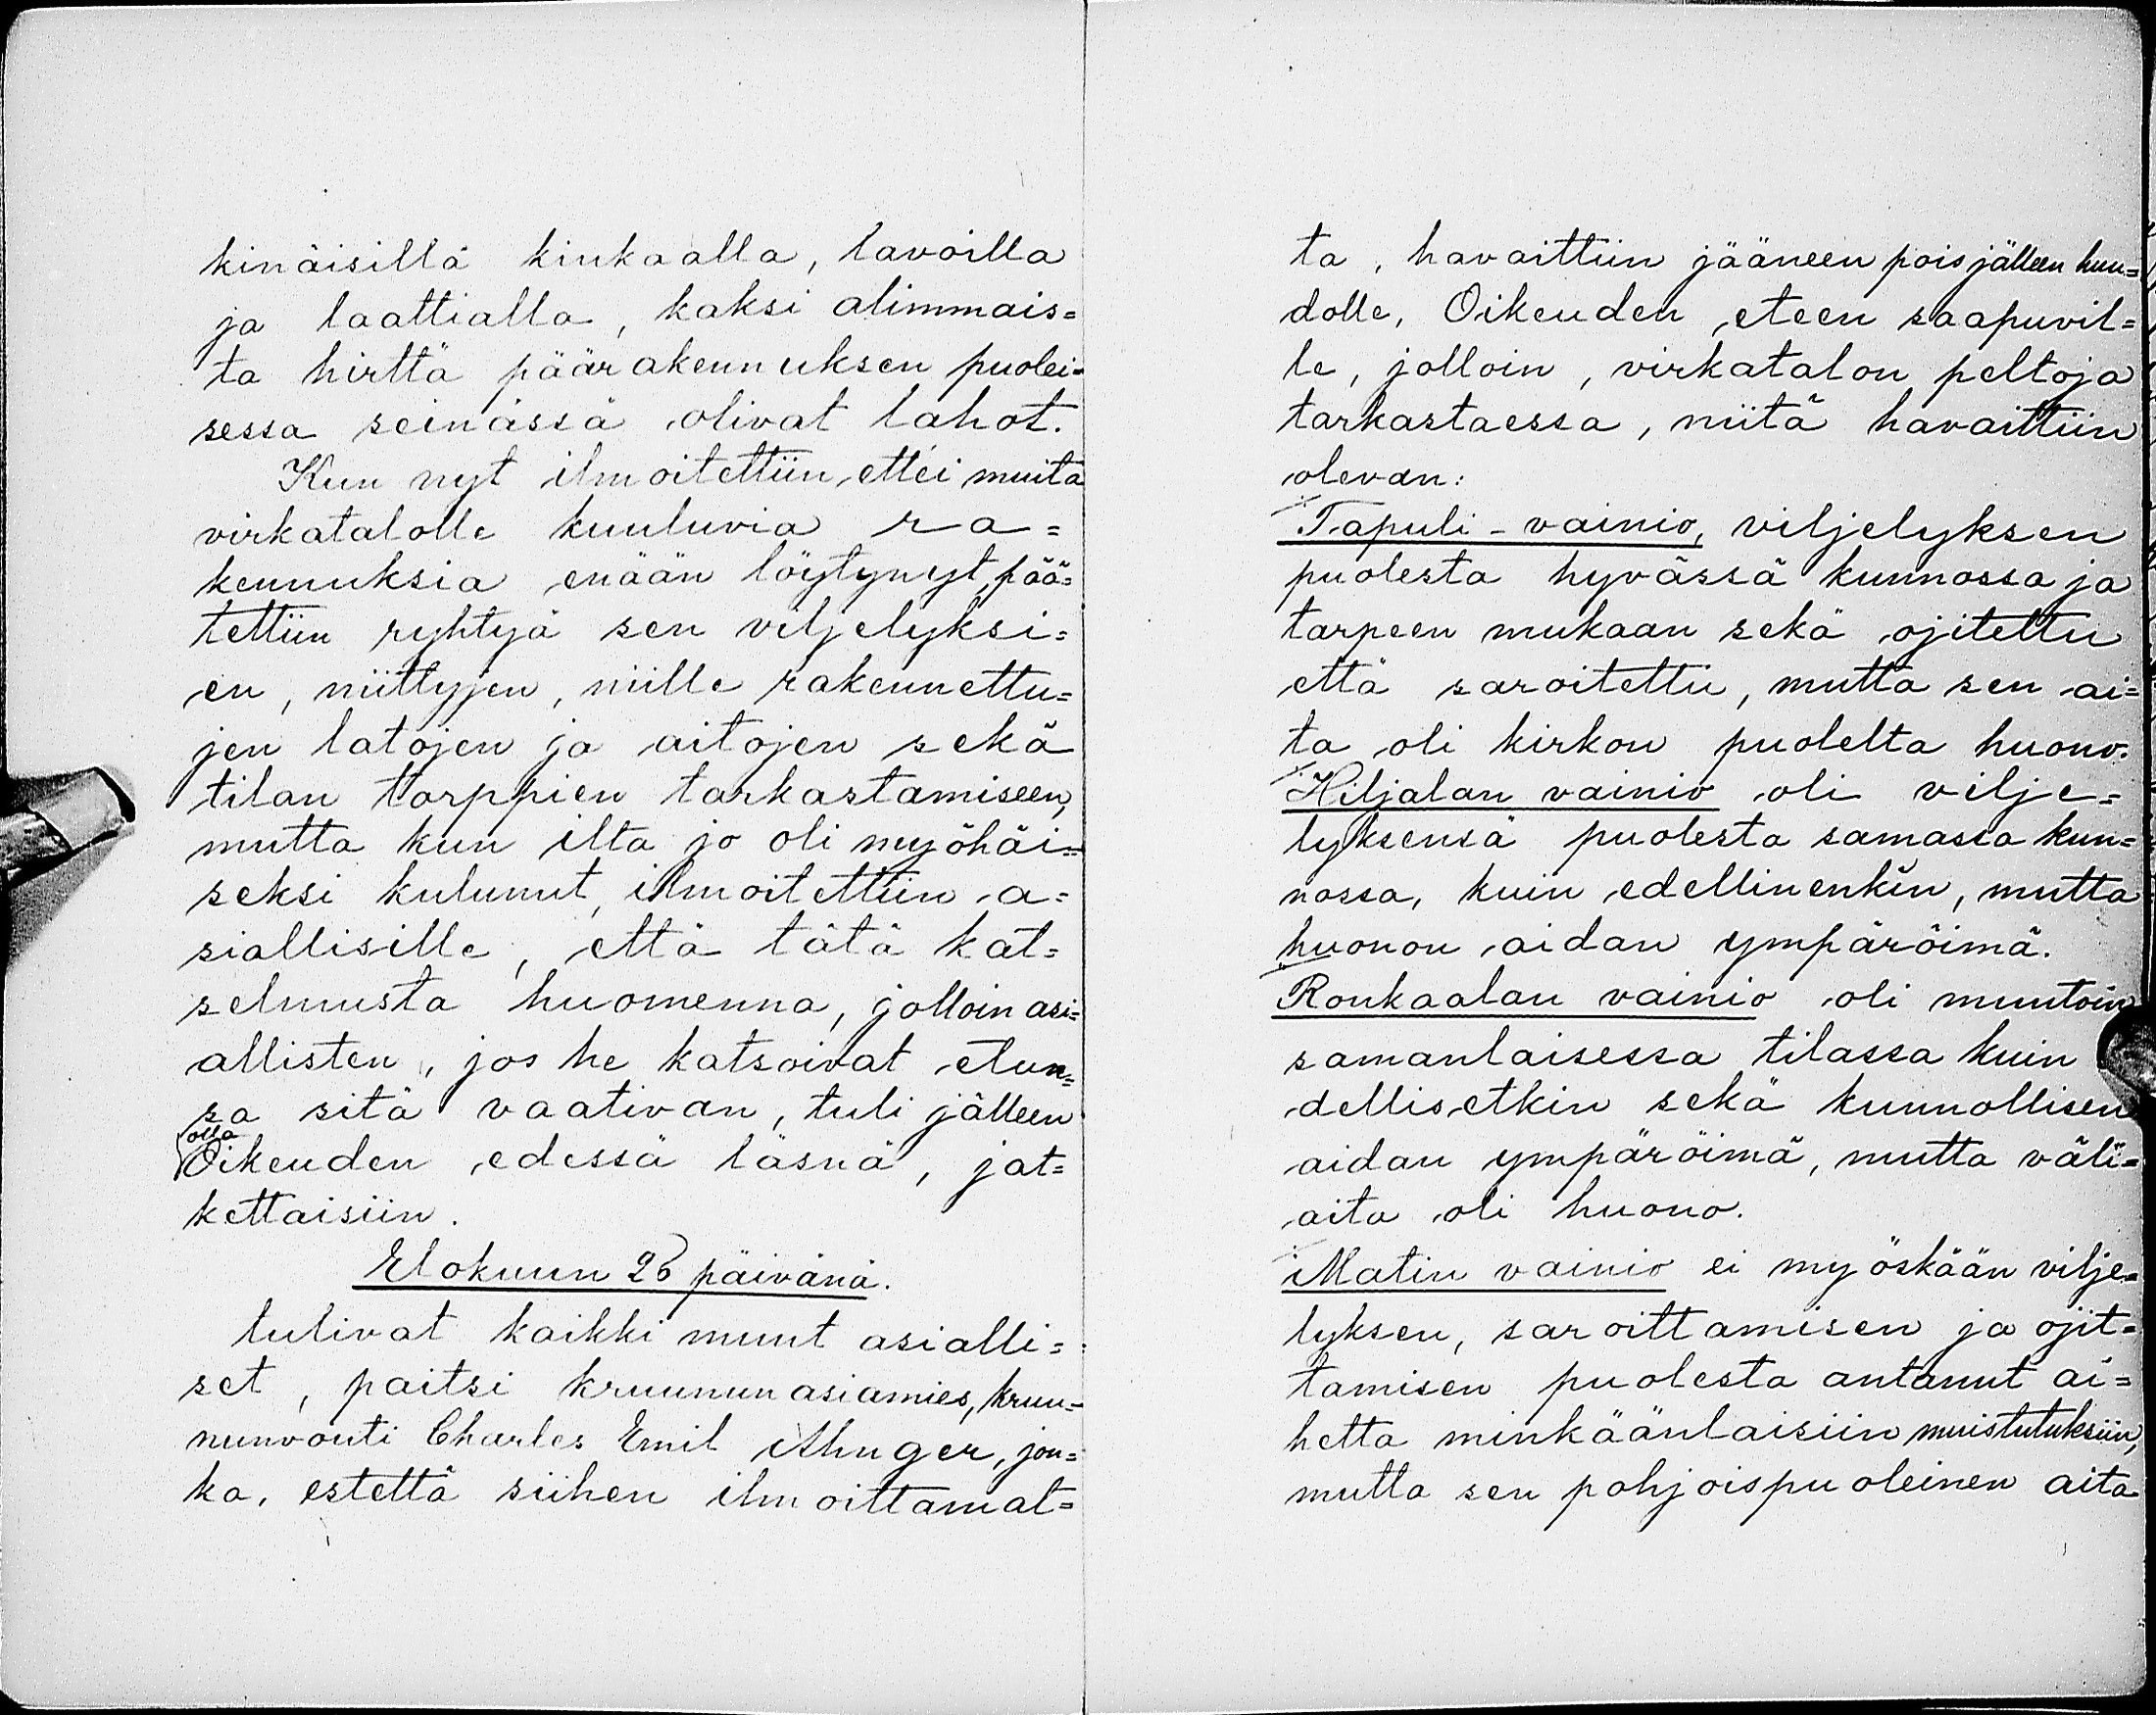 kinäisillä kiukaalla, lavoilla
ja laattialla, kaksi alimmais=
ta hirttä päärakennuksen puolei=
sessa seinässä olivat lahot.
Kun nyt ilmoitettiin, ettei muita
virkatalolle kuuluvia ra=
kennuksia enään löytynyt, pää=
tettiin ryhtyä sen viljelyksi=
en, niittyjen, niille rakennettu=
jen latojen ja aitojen sekä
tilan torppien tarkastamiseen,
mutta kun ilta jo oli myöhäi=
seksi kulunut, ilmoitettiin a=
siallisille, että tätä kat=
selmusta huomenna, jolloin asi=
allisten, jos he katsoivat etun=
sa sitä vaativan, tuli jälleen
olla
Oikeuden edessä läsnä, jat=
kettaisiin.
Elokuun 26 päivänä.
tulivat kaikki muut asialli=
set, paitsi kruunun asiamies, kruu=
nunvouti Charles Emil Ahnger, jon=
ka, estettä siihen ilmoittamat=
ta, havaittiin jääneen pois jälleen huu=
dolle, Oikeuden eteen saapuvil=
le, jolloin, virkatalon peltoja
tarkastaessa, niitä havaittiin
olevan:
Tapuli-vainio, viljelyksen
puolesta hyvässä kunnossa ja
tarpeen mukaan sekä ojitettu
että saroitettu, mutta sen ai=
ta oli kirkon puolelta huono.
Hiljalan vainio oli vilje=
lyksensä puolesta samassa kun=
nossa, kuin edellinenkin, mutta
huonon aidan ympäröimä.
Ronkaalan vainio oli muutoin
samanlaisessa tilassa kuin
dellisetkin sekä kunnollisen
aidan ympäröimä, mutta väli=
aita oli huono.
Matin vainio ei myöskään vilje=
lyksen, saroittamisen ja ojit=
tamisen puolesta antanut ai=
hetta minkäänlaisiin muistutuksiin,
mutta sen pohjoispuoleinen aita